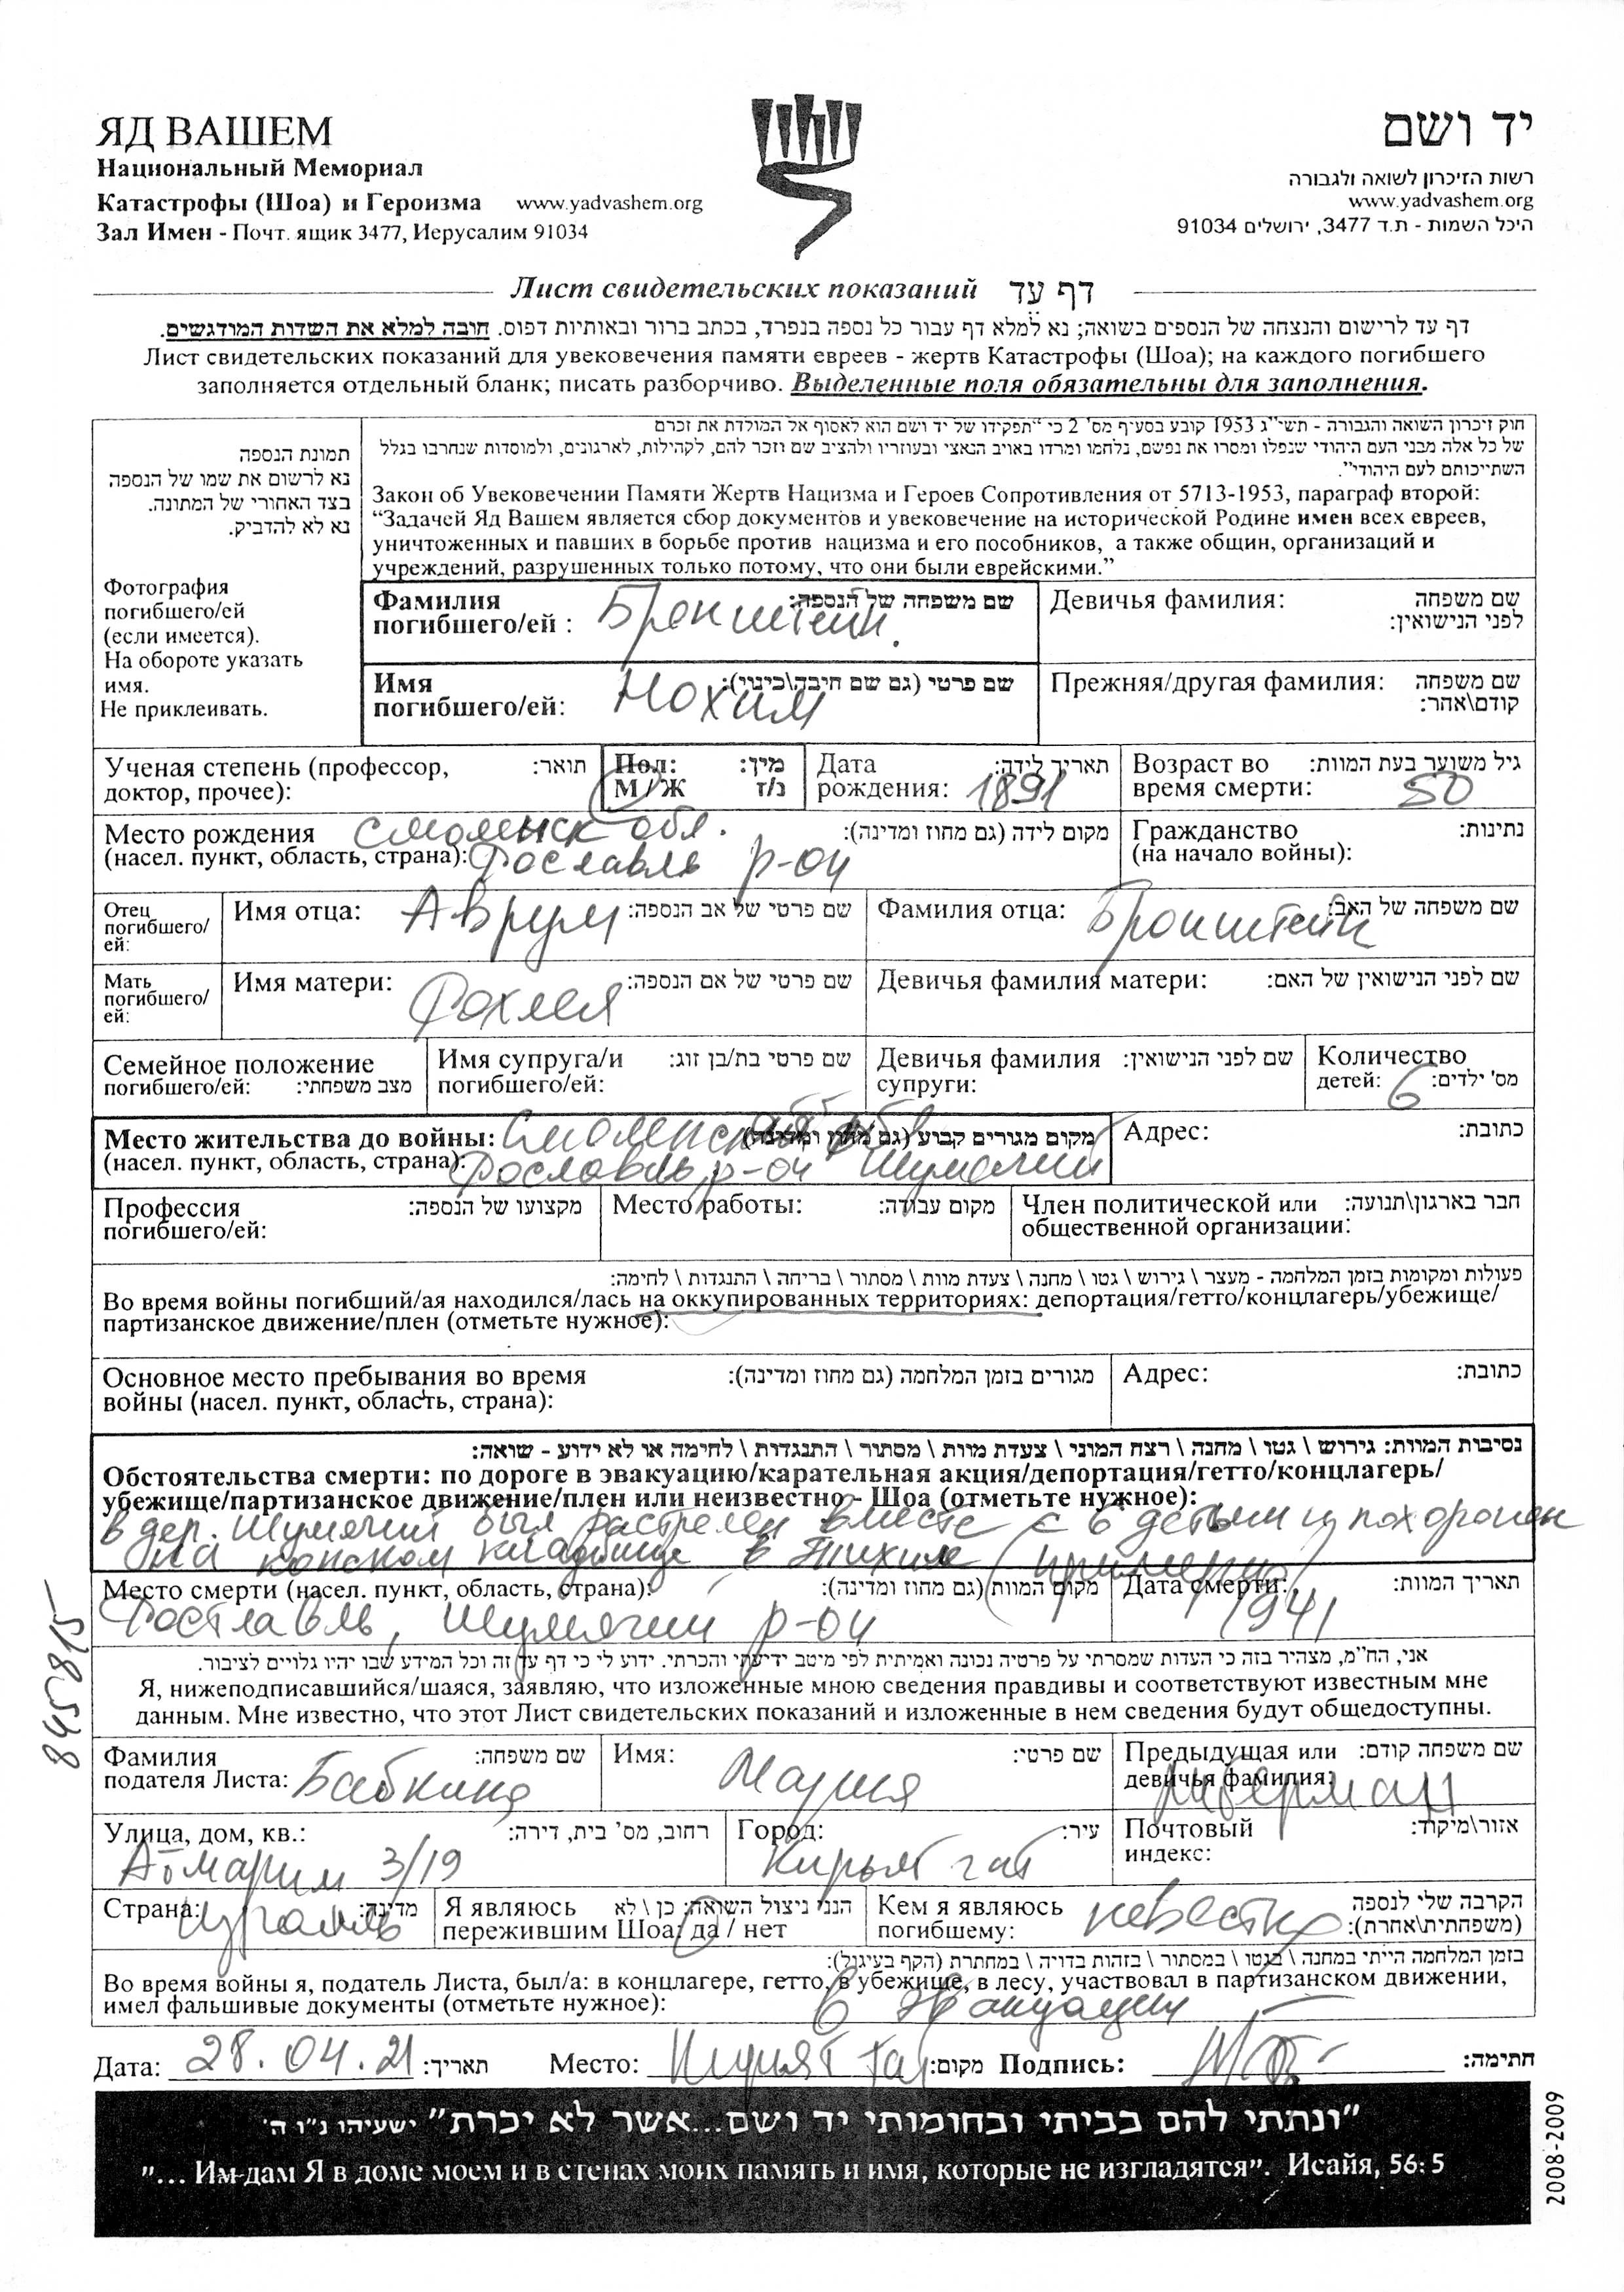 ЯД ВАШЕМ
Национальный Мемориал
Катастрофы (Шоа) и Героизма www.yadvashem.org
Зал Имен - Почт. ящик 3477, Иерусалим 91034
יד ושם
רשות הזיכרון לשואה ולגבורה
www.yadvashem.org
היכל השמות - ת.ד 3477, ירושלים 91034
Лист свидетельских показаний דף עד
דף עד לרישום והנצחה של הנספים בשואה; נא למלא דף עבור כל נספה בנפרד, בכתב ברור ובאותיות דפוס. חובה למלא את השדות המודגשים.
Лист свидетельских показаний для увековечения памяти евреев - жертв Катастрофы (Шоа); на каждого погибшего
заполняется отдельный бланк; писать разборчиво. Выделенные поля обязательны для заполнения.
תמונת הנספה
נא לרשום את שמו של הנספה
בצד האחורי של המתונה.
נא לא להדביק.
Фотография
погибшего/ей
(если имеется).
На обороте указать
имя.
Не приклеивать.
חוק זיכרון השואה והגבורה - תשי"ג 1953 קובע בסעיף מס' 2 כי "תפקידו של יד ושם הוא לאסוף אל המולדת את זכרם
של כל אלה מבני העם היהודי שנפלו ומסרו את נפשם, נלחמו ומרדו באויב הנאצי ובעוזריו ולהציב שם וזכר להם, לקהילות, לארגונים, ולמוסדות שנחרבו בגלל
השתייכותם לעם היהודי".
Закон об Увековечении Памяти Жертв Нацизма и Героев Сопротивления от 5713-1953, параграф второй:
“Задачей Яд Вашем является сбор документов и увековечение на исторической Родине имен всех евреев,
уничтоженных и павших в борьбе против нацизма и его пособников, а также общин, организаций и
учреждений, разрушенных только потому, что они были еврейскими.”
Фамилия שם משפחה של הנספה:
погибшего/ей : Бронштейн.
Девичья фамилия: שם משפחה
לפני הנישואין:
Имя שם פרטי (גם שם חיבה\כינוי):
погибшего/ей: Нохим
Прежняя/другая фамилия: שם משפחה
קודם\אחר:
Ученая степень (профессор, תואר:
доктор, прочее):
Пол: מין:
М / Ж נ/ז
Дата תאריך לידה:
рождения: 1891
Возраст во גיל משוער בעת המוות:
время смерти: 50
Место рождения Смоленск обл. מקום לידה (גם מחוז ומדינה):
(насел. пункт, область, страна): Рославль р-он
Гражданство נתינות:
(на начало войны):
Отец
погибшего/
ей:
Имя отца: Аврум שם פרטי של אב הנספה:
Фамилия отца: Бронштейн שם משפחה של האב:
Мать
погибшего/
ей:
Имя матери: Рохлея שם פרטי של אם הנספה:
Девичья фамилия матери: שם לפני הנישואין של האם:
Семейное положение
погибшего/ей: מצב משפחתי:
Имя супруга/и שם פרטי בת/בן זוג:
погибшего/ей:
Девичья фамилия שם לפני הנישואין:
супруги:
Количество
детей: 6 מס' ילדים:
Место жительства до войны: Смоленская обл מקום מגורים קבוע (גם מחוז ומדינה):
(насел. пункт, область, страна): Рославль, р-он Шумячий
Адрес: כתובת:
Профессия מקצועו של הנספה:
погибшего/ей:
Место работы: מקום עבודה:
Член политической или חבר בארגון\תנועה:
общественной организации:
פעולות ומקומות בזמן המלחמה - מעצר \ גירוש \ גטו \ מחנה \ צעדת מוות \ מסתור \ בריחה \ התנגדות \ לחימה:
Во время войны погибший/ая находился/лась на оккупированных территориях: депортация/гетто/концлагерь/убежище/
партизанское движение/плен (отметьте нужное):
Основное место пребывания во время מגורים בזמן המלחמה (גם מחוז ומדינה):
войны (насел. пункт, область, страна):
Адрес: כתובת:
נסיבות המוות: גירוש \ גטו \ מחנה \ רצח המוני \ צעדת מוות \ מסתור \ התנגדות \ לחימה או לא ידוע - שואה:
Обстоятельства смерти: по дороге в эвакуацию/карательная акция/депортация/гетто/концлагерь/
убежище/партизанское движение/плен или неизвестно - Шоа (отметьте нужное):
в дер. Шумячий был растрелен вместе с 6 детьми и похоронен
на конском кладбище в (примерно)
Место смерти (насел. пункт, область, страна): מקום המוות (גם מחוז ומדינה):
Ростлавль, Шумячий р-он
Дата смерти: תאריך המוות:
1941
אני, הח"מ, מצהיר בזה כי העדות שמסרתי על פרטיה נכונה ואמיתית לפי מיטב ידיעתי והכרתי. ידוע לי כי דף עד זה וכל המידע שבו יהיו גלויים לציבור.
Я, нижеподписавшийся/шаяся, заявляю, что изложенные мною сведения правдивы и соответствуют известным мне
данным. Мне известно, что этот Лист свидетельских показаний и изложенные в нем сведения будут общедоступны.
Фамилия שם משפחה:
подателя Листа: Бабкина
Имя: Мария שם פרטי:
Предыдущая или שם משפחה קודם:
девичья фамилия: Либерман
Улица, дом, кв.: רחוב, מס' בית, דירה:
3/19
Город: עיר:
Кирьят гат
Почтовый אזור\מיקוד:
индекс:
Страна: Израиль מדינה:
Я являюсь הנני ניצול השואה: כן \ לא
пережившим Шоа: да / нет
Кем я являюсь הקרבה שלי לנספה
погибшему: невестка (משפחתית\אחרת):
בזמן המלחמה הייתי במחנה \ בגטו \ במסתור \ בזהות בדויה \ במחתרת (הקף בעיגול):
Во время войны я, податель Листа, был/а: в концлагере, гетто, в убежище, в лесу, участвовал в партизанском движении,
имел фальшивые документы (отметьте нужное): в эвакуации
Дата: 28.04.21 תאריך: Место: Кирият Гат מקום: Подпись: חתימה:
"ונתתי להם בביתי ובחומותי יד ושם...אשר לא יכרת" ישעיהו נ"ו ה'
"... Им дам Я в доме моем и в стенах моих память и имя, которые не изгладятся". Исайя, 56: 5
845815
2008-2009